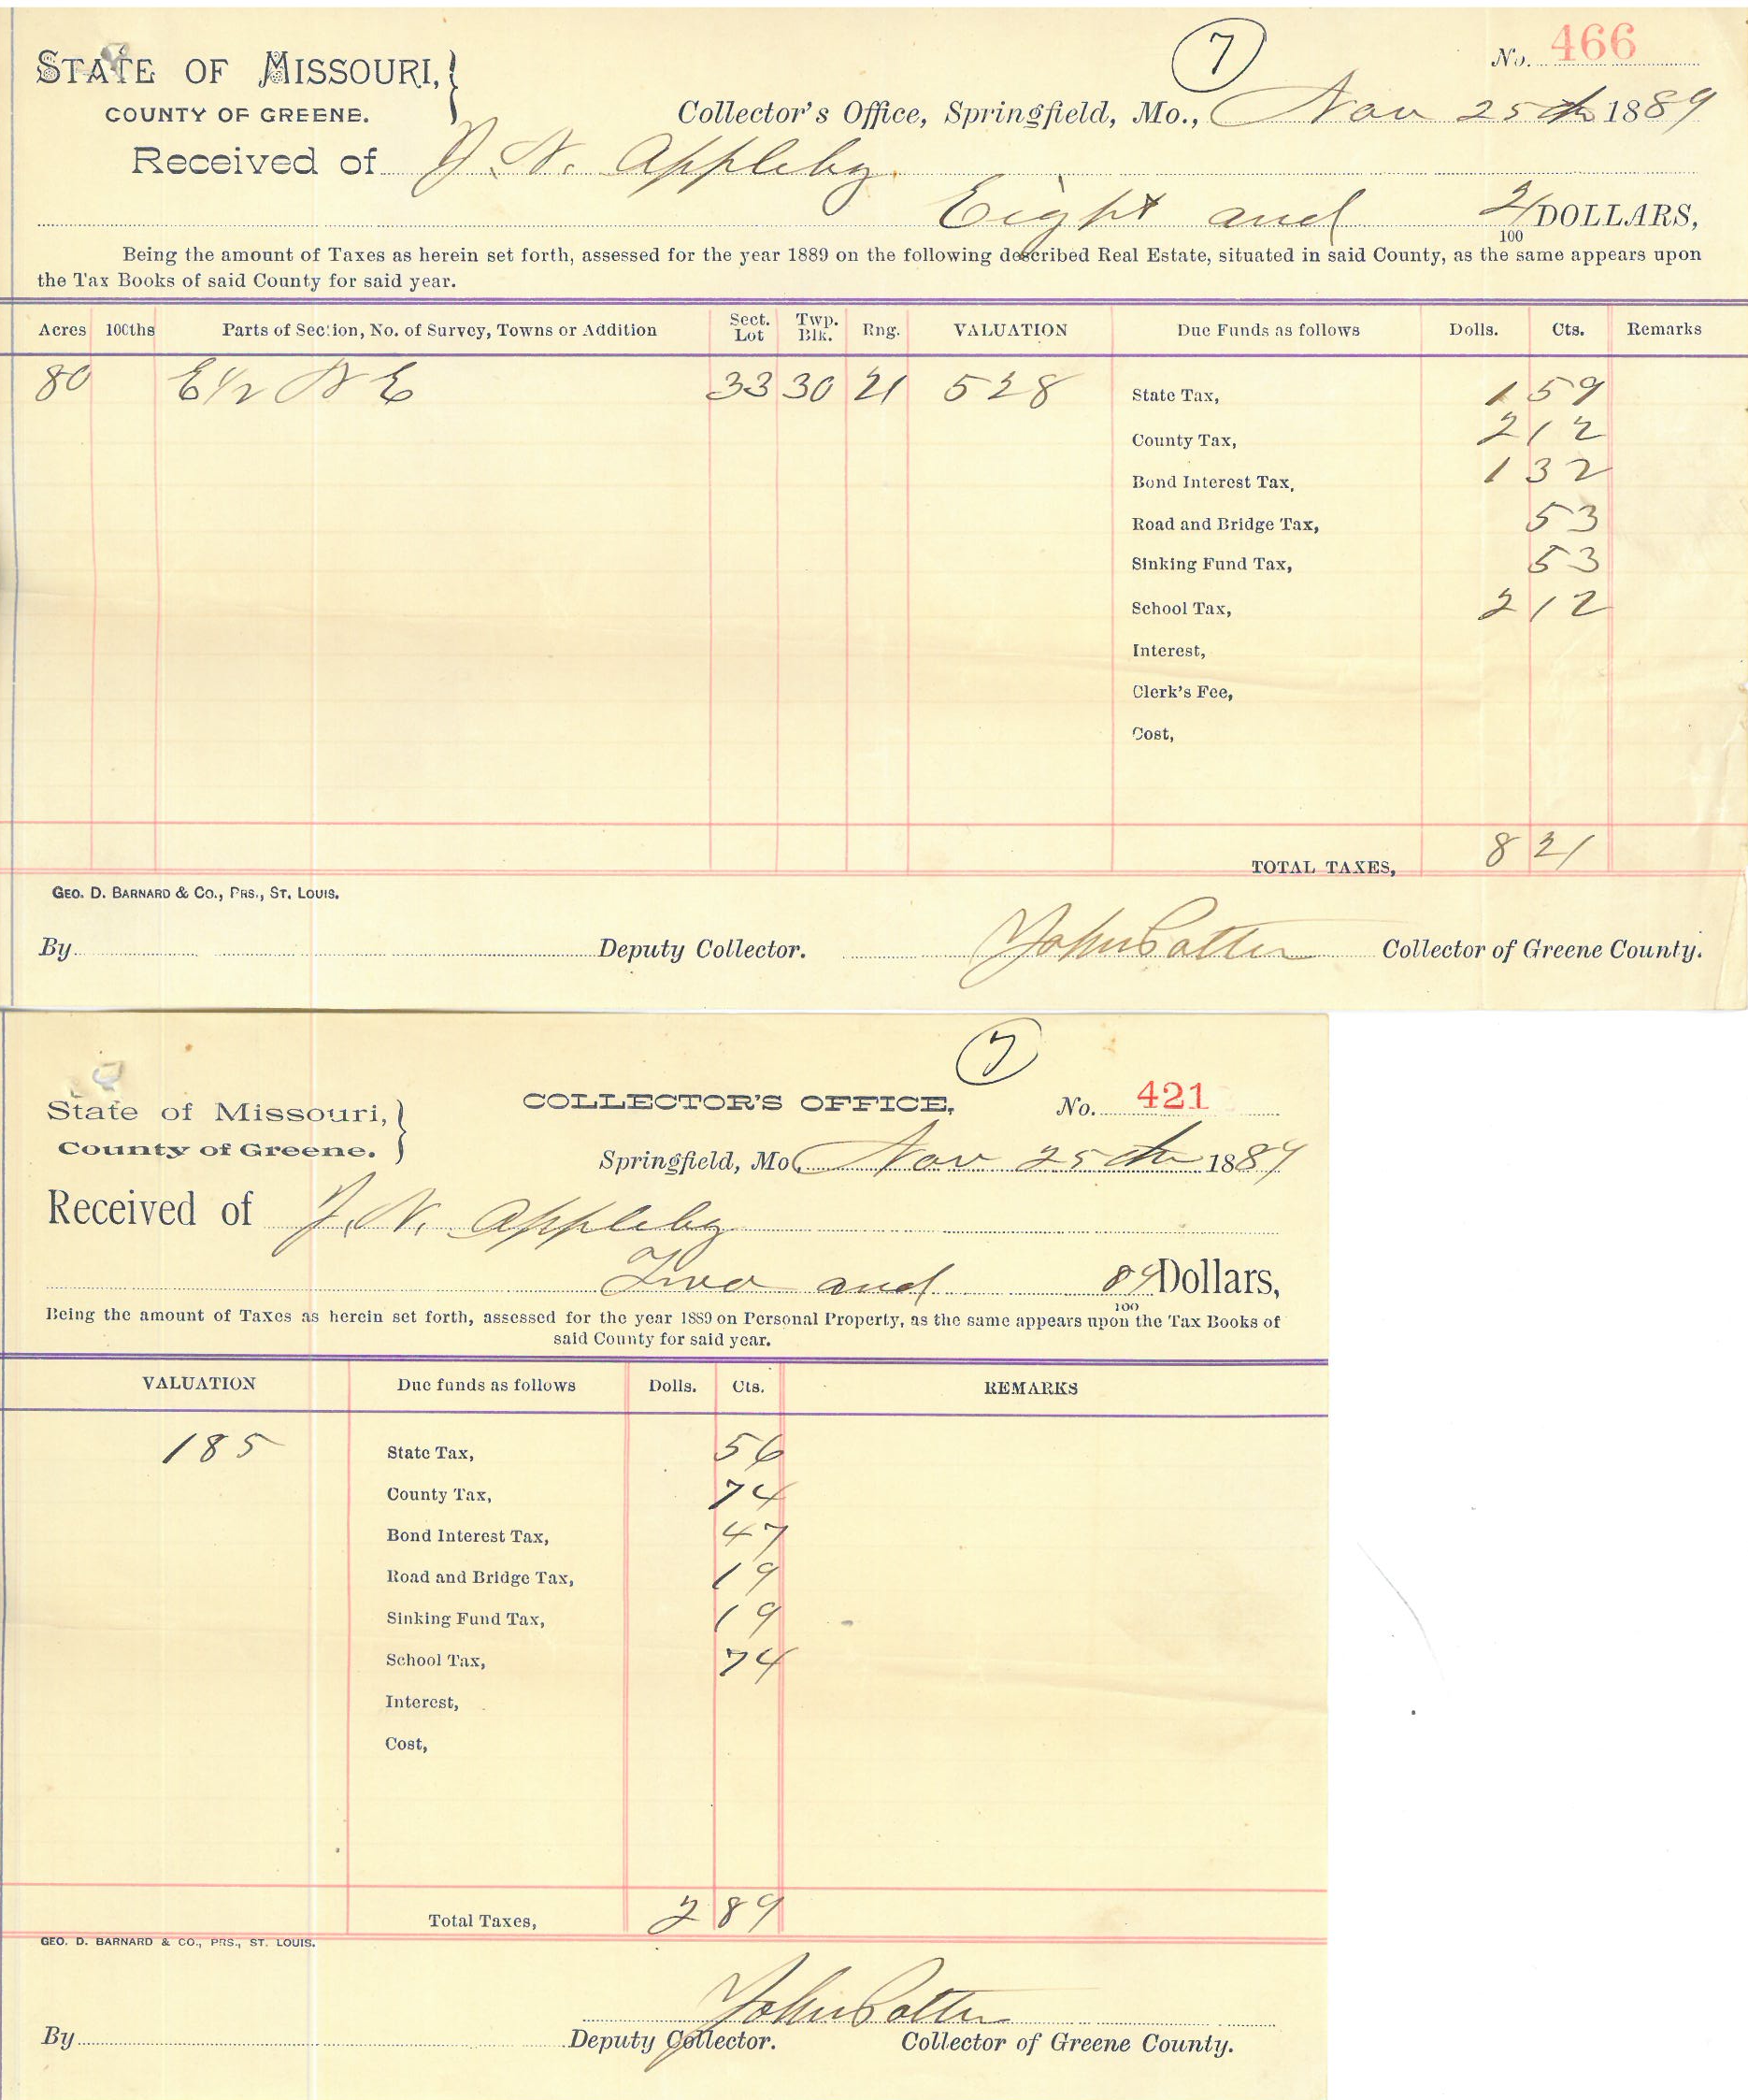 STATE OF MISSOURI,
COUNTY OF GREENE.
7
No. 466
Collector's Office, Springfield, Mo., Nov 25th 1889
Received of J. N. Appleby
Eight and 21/100 DOLLARS,
Being the amount of Taxes as herein set forth, assessed for the year 1889 on the following described Real Estate, situated in said County, as the same appears upon
the Tax Books of said County for said year.
Acres 100ths Parts of Section, No. of Survey, Towns or Addition Sect. Lot Twp. Blk. Rng. VALUATION Due Funds as follows Dolls. Cts. Remarks
80 E 1/2 N E 33 30 21 528 State Tax, 1 59
County Tax, 2 12
Bond Interest Tax, 1 32
Road and Bridge Tax, 53
Sinking Fund Tax, 53
School Tax, 2 12
Interest,
Clerk's Fee,
Cost,
TOTAL TAXES, 8 21
GEO. D. BARNARD & CO., PRS., ST. LOUIS.
By Deputy Collector. John Patter Collector of Greene County.
7
State of Missouri,
County of Greene.
COLLECTOR'S OFFICE, No. 421
Springfield, Mo., Nov 25th 1889
Received of J. N. Appleby
Two and 89/100 Dollars,
Being the amount of Taxes as herein set forth, assessed for the year 1889 on Personal Property, as the same appears upon the Tax Books of
said County for said year.
VALUATION Due funds as follows Dolls. Cts. REMARKS
185 State Tax, 56
County Tax, 74
Bond Interest Tax, 47
Road and Bridge Tax, 19
Sinking Fund Tax, 19
School Tax, 74
Interest,
Cost,
Total Taxes, 2 89
GEO. D. BARNARD & CO., PRS., ST. LOUIS.
John Patter
By Deputy Collector. Collector of Greene County.